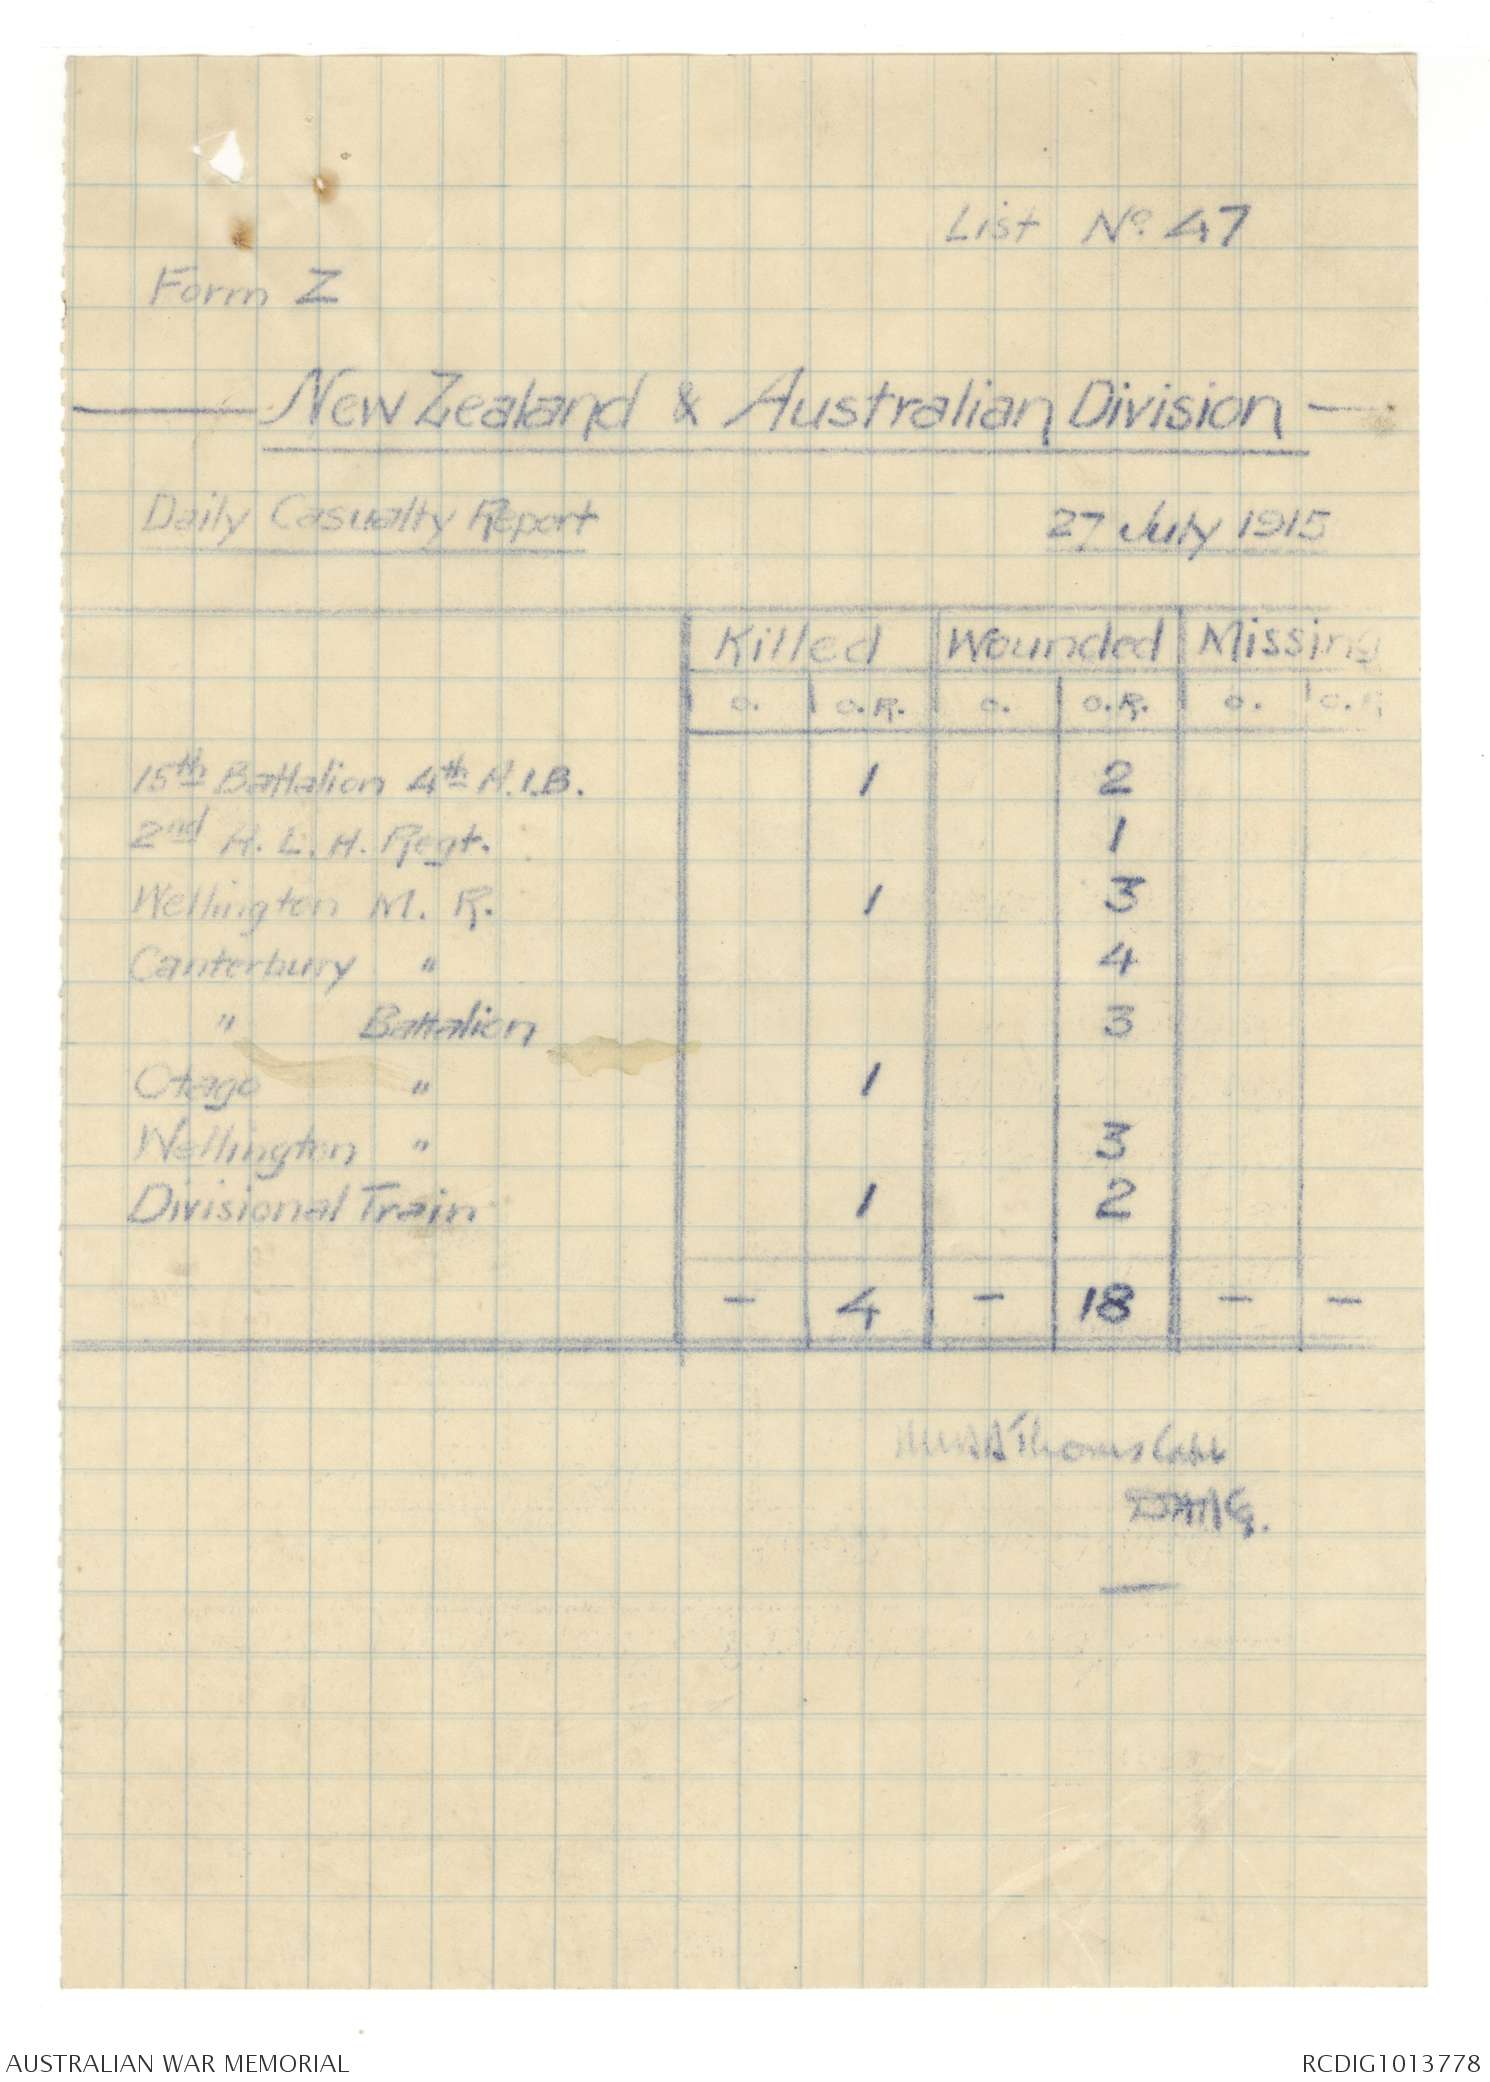 List No. 47
Form Z
New Zealand & Australian Division
Daily Casualty Report 27 July 1915
Killed Wounded Missing
O. O.R. O. O.R. O. O.R
15th Battalion 4th A.I.B. 1 2
2nd A.L.H. Regt. 1
Wellington M.R. 1 3
Canterbury " 4
" Battalion 3
Otago " 1
Wellington " 3
Divisional Train 1 2
- 4 - 18 - -
Thoms Capt
AUSTRALIAN WAR MEMORIAL RCDIG1013778